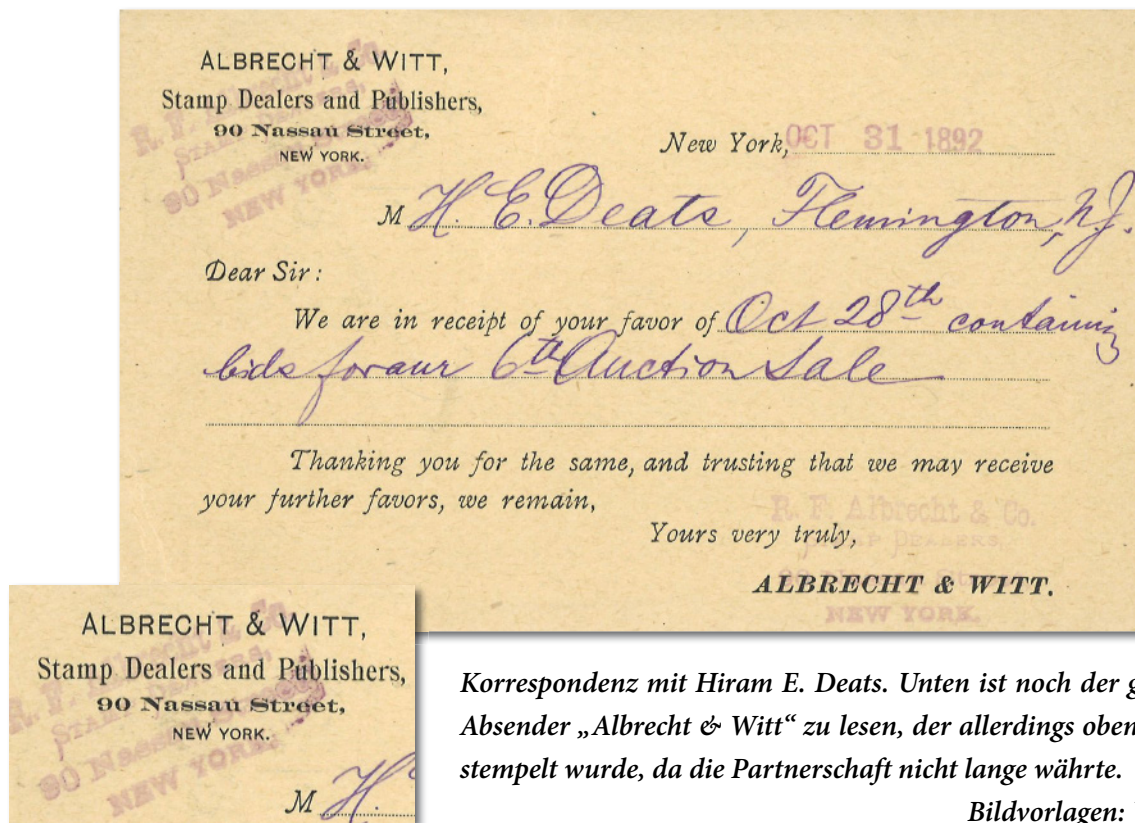 ALBRECHT & WITT,
Stamp Dealers and Publishers,
90 Nassau Street,
NEW YORK.
R. F. Albrecht & Co.
STAMP DEALERS,
90 Nassau Street,
NEW YORK.
New York, OCT 31 1892
M H. E. Deats, Flemington, N.J.
Dear Sir:
We are in receipt of your favor of Oct 28th containing
bids for our 6th Auction Sale
Thanking you for the same, and trusting that we may receive
your further favors, we remain,
Yours very truly,
R. F. Albrecht & Co.
STAMP DEALERS,
90 Nassau Street,
NEW YORK.
ALBRECHT & WITT.
ALBRECHT & WITT,
Stamp Dealers and Publishers,
90 Nassau Street,
NEW YORK.
90 Nassau
NEW YORK.
M H.
Korrespondenz mit Hiram E. Deats. Unten ist noch der g
Absender „Albrecht & Witt“ zu lesen, der allerdings oben
stempelt wurde, da die Partnerschaft nicht lange währte.
Bildvorlagen: